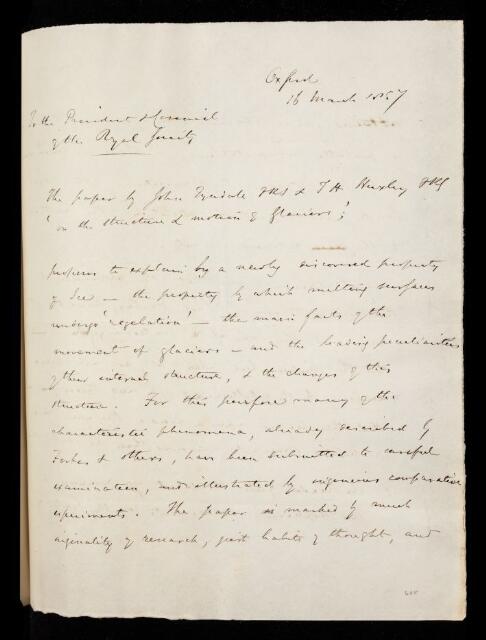 Oxford
16 March 1857
To the President & Council
of the Royal Society
The paper by John Tyndale FRS & T. H. Huxley FRS
'on the structure & motion of Glaciers',
proposes to explain by a newly discovered property
of Ice — the property by which melting surfaces
undergo 'regelation' — the main facts of the
movement of glaciers — and the leading peculiarities
of their internal structure, & the changes of this
structure. For this purpose many of the
characteristic phenomena, already described by
Forbes & others, have been submitted to careful
examination, and illustrated by ingenious comparative
experiments. The paper is marked by much
originality of research, just habits of thought, and